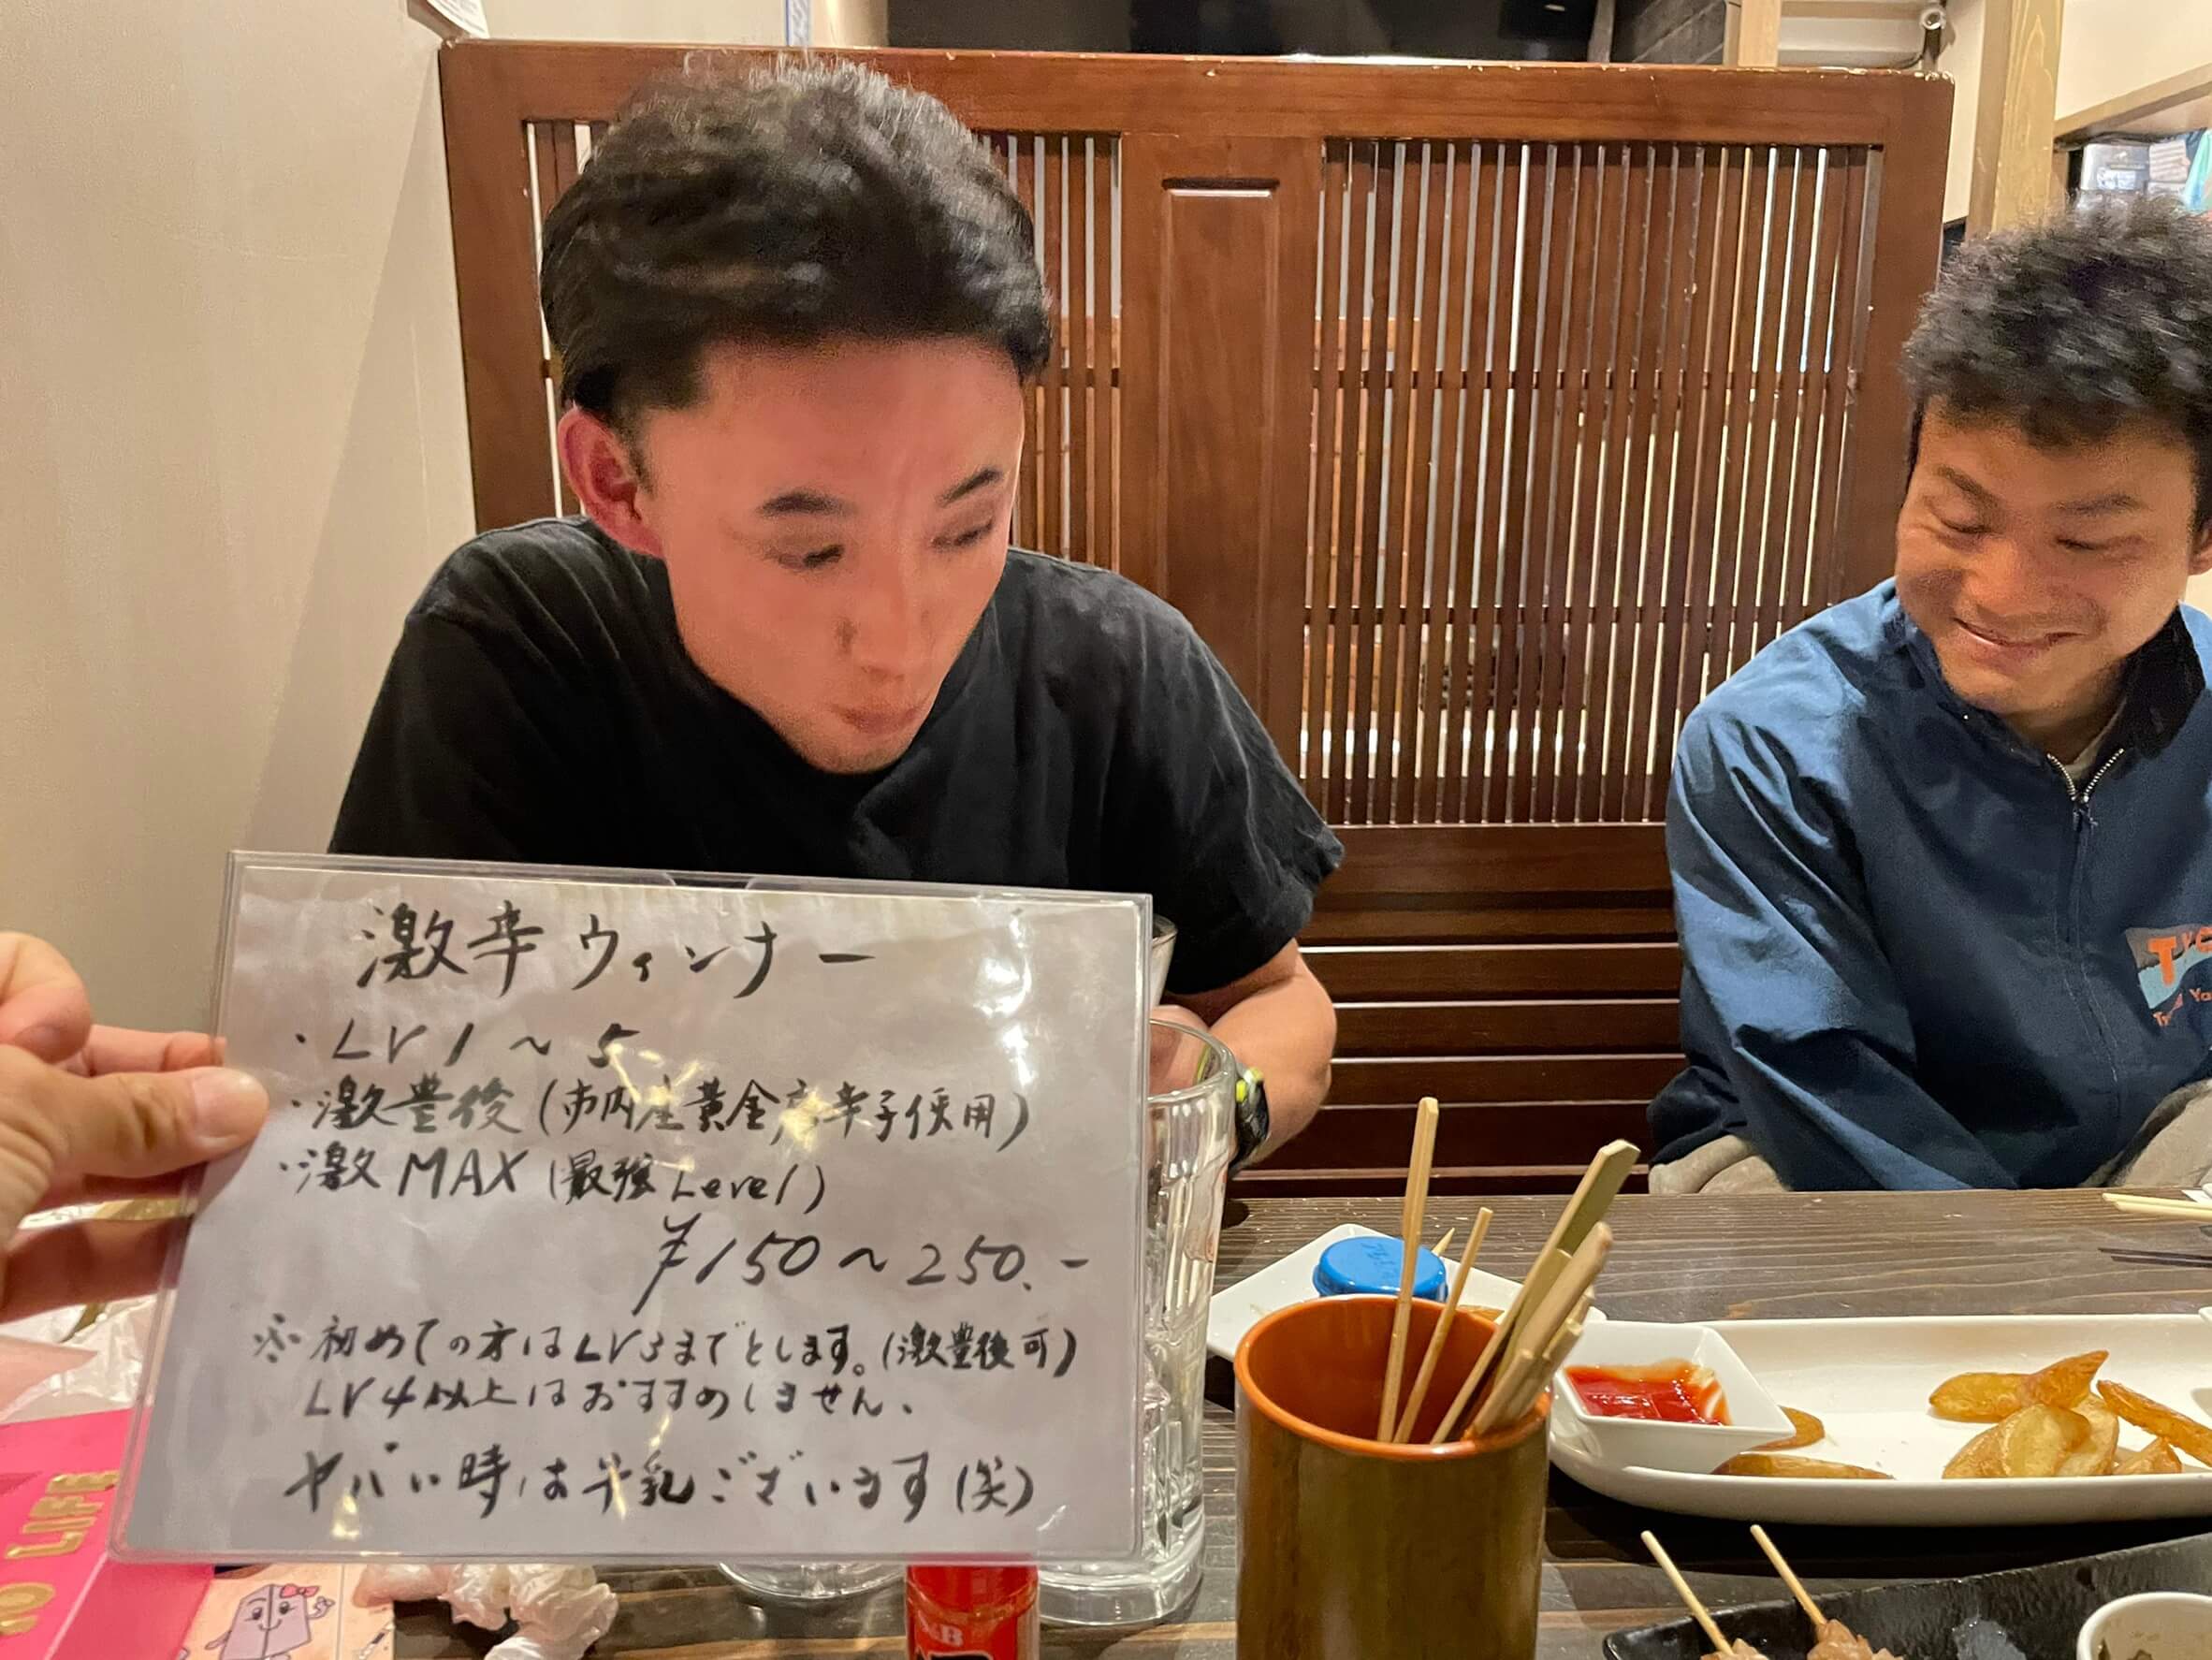 激辛ウィンナー
・LV1～5
・激豊後(市内産黄金唐辛子使用)
・激MAX(最強Level)
¥150～250.-
※初めての方はLV3までとします。(激豊後可)
LV4以上はおすすめしません.
ヤバい時は牛乳ございます(笑)
TO LIFE
S&B